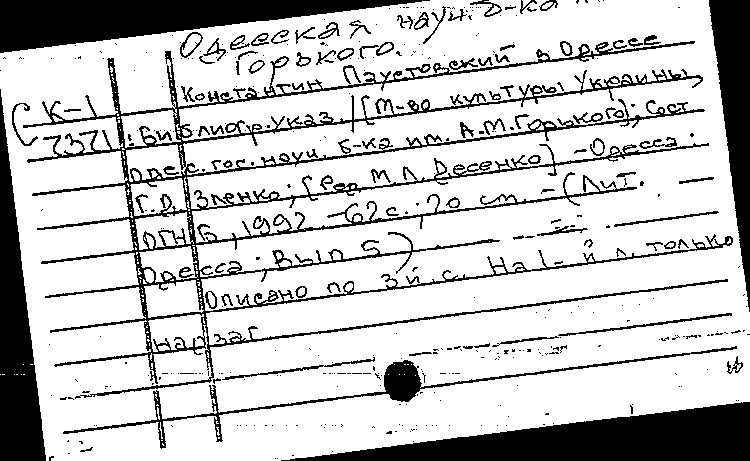 Одесская науч. б-ка
Горького.
Константин Паустовский в Одессе
К-1
7371
: Библиогр. указ. / [М-во культуры Украины,
Одес. гос. науч. б-ка им. А.М. Горького]; Сост.
Г.Д. Зленко; [Ред. М.Л. Десенко] – Одесса :
ОГНБ, 1992. – 62 с.; 20 см. – (Лит.
Одесса; Вып 5)
Описано по 3й с. На 1-й л. только
нар заг